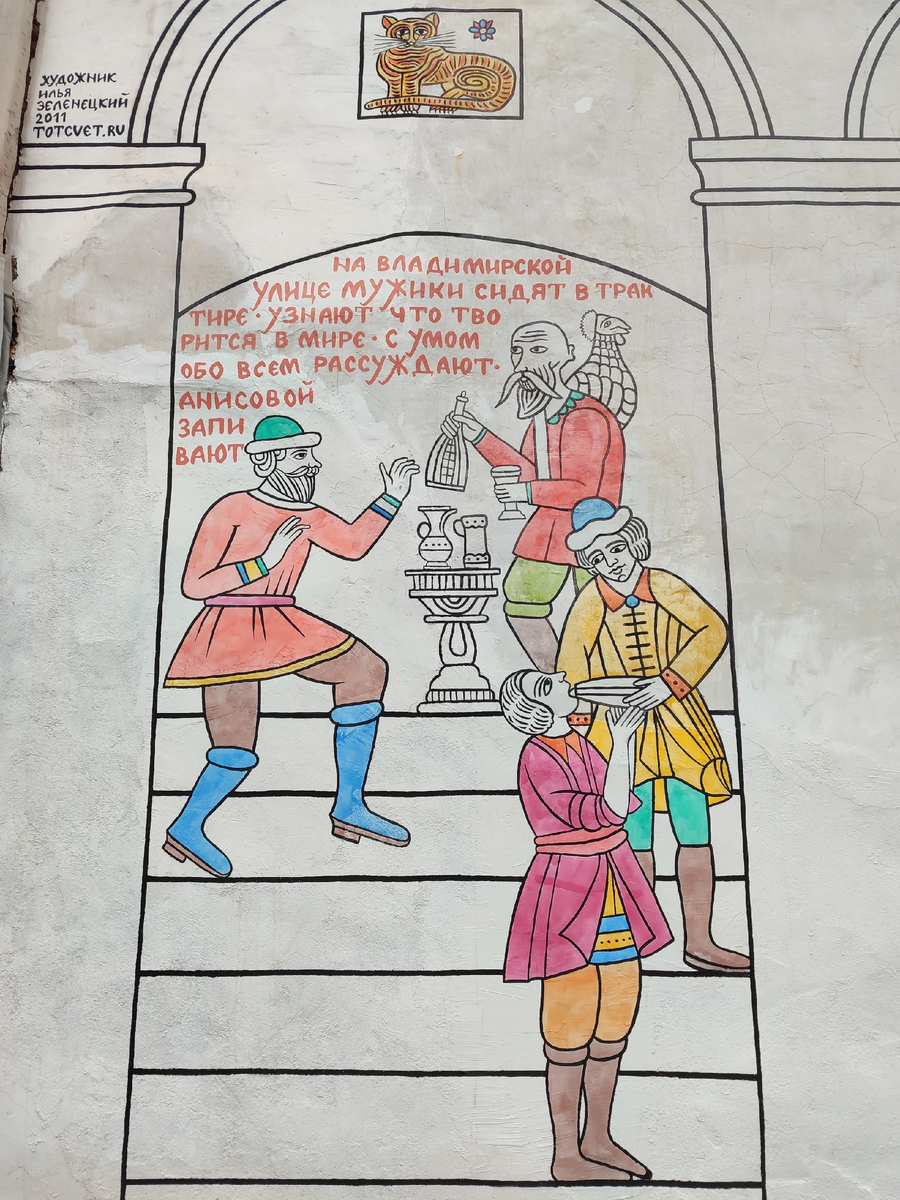 ХУДОЖНИК
ИЛЬЯ
ЗЕЛЕНЕЦКИЙ
2011
TOTCVET.RU
НА ВЛАДИМИРСКОЙ
УЛИЦЕ МУЖИКИ СИДЯТ В ТРАК
ТИРЕ · УЗНАЮТ ЧТО ТВО
РИТСЯ В МИРЕ · С УМОМ
ОБО ВСЕМ РАССУЖДАЮТ ·
АНИСОВОЙ
ЗАПИ
ВАЮТ